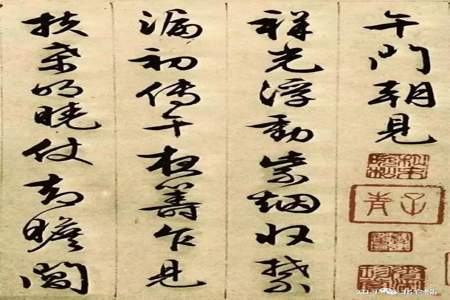 午門朝見
祥光浮動紫烟收禁
漏初傳午夜籌乍見
扶桑明曉仗却瞻閶
子青